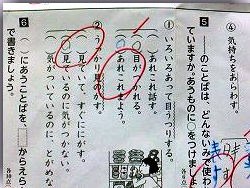 ④ 気持ちをあらわす。
5 ___のことばは、どんないみで使わ
ていますか。あうものに○をつけましょ
① いろいろあって目うつりする。
( )あれこれ話す。
(○)目がつかれる。
( )あれこれまよう。
② うっかり見のがす。
( )見ていて、すぐににがす。
(○)見ているのに気がつかない。
( )気がついているのに、とがめな
6 ( )にあうことばを、 からえら
で書きましょう。
各10点